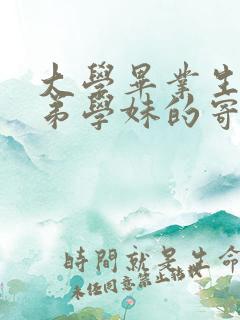 大學畢業生
弟學妹的寄
時間就是生命
未經同意禁止轉載